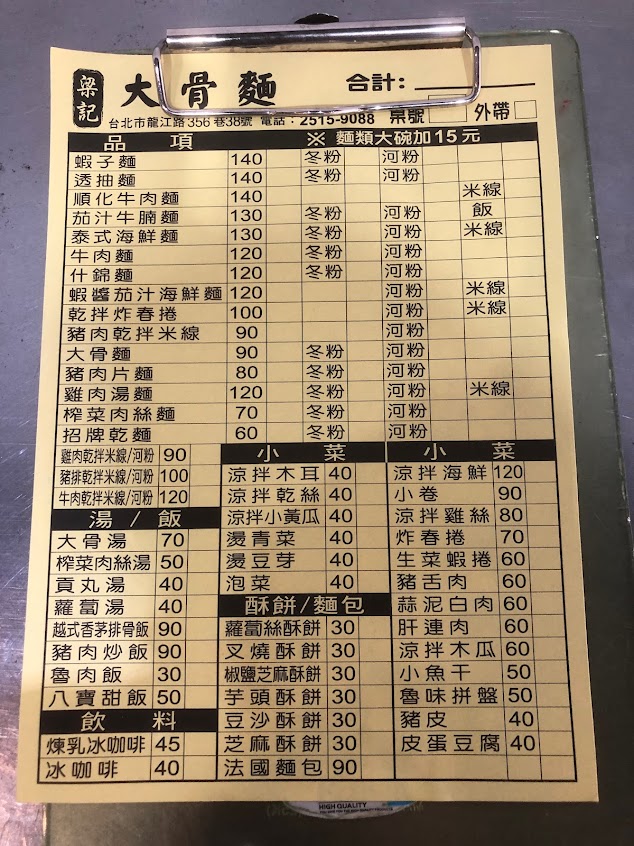 梁記 大骨麵 合計:
台北市龍江路356巷38號 電話:2515-9088 桌號 外帶
品項 ※ 麵類大碗加15元
蝦子麵 140 冬粉 河粉
透抽麵 140 冬粉 河粉
順化牛肉麵 140 米線
茄汁牛腩麵 130 冬粉 河粉 飯
泰式海鮮麵 130 冬粉 河粉 米線
牛肉麵 120 冬粉 河粉
什錦麵 120 冬粉 河粉
蝦醬茄汁海鮮麵 120 河粉 米線
乾拌炸春捲 100 河粉 米線
豬肉乾拌米線 90 河粉
大骨麵 90 冬粉 河粉
豬肉片麵 80 冬粉 河粉
雞肉湯麵 120 冬粉 河粉 米線
榨菜肉絲麵 70 冬粉 河粉
招牌乾麵 60 冬粉 河粉
雞肉乾拌米線/河粉 90
豬排乾拌米線/河粉 100
牛肉乾拌米線/河粉 120
湯/飯
大骨湯 70
榨菜肉絲湯 50
貢丸湯 40
蘿蔔湯 40
越式香茅排骨飯 90
豬肉炒飯 90
魯肉飯 30
八寶甜飯 50
飲料
煉乳冰咖啡 45
冰咖啡 40
小菜
涼拌木耳 40
涼拌乾絲 40
涼拌小黃瓜 40
燙青菜 40
燙豆芽 40
泡菜 40
酥餅/麵包
蘿蔔絲酥餅 30
叉燒酥餅 30
椒鹽芝麻酥餅 30
芋頭酥餅 30
豆沙酥餅 30
芝麻酥餅 30
法國麵包 90
小菜
涼拌海鮮 120
小卷 90
涼拌雞絲 80
炸春捲 70
生菜蝦捲 60
豬舌肉 60
蒜泥白肉 60
肝連肉 60
涼拌木瓜 60
小魚干 50
魯味拼盤 50
豬皮 40
皮蛋豆腐 40
HIGH QUALITY